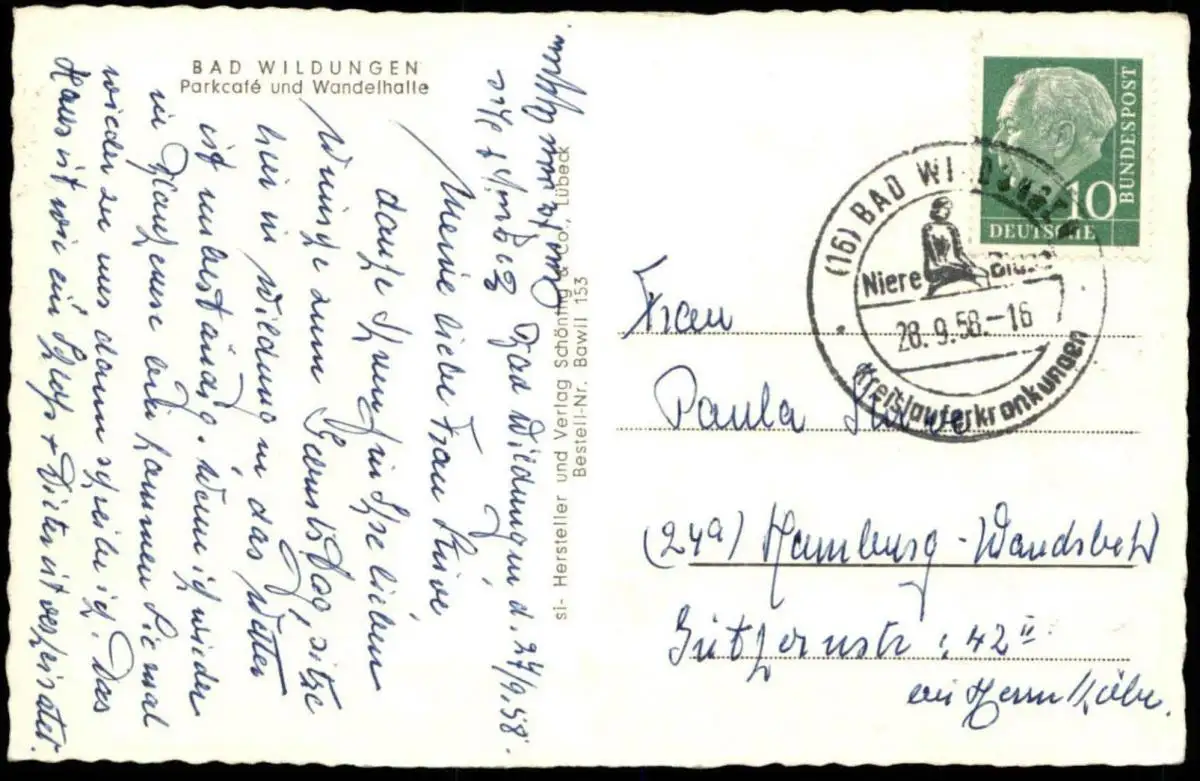 BAD WILDUNGEN
Parkcafé und Wandelhalle
Bad Wildungen d. 27/9.58.
Meine liebe Frau Stüve
danke Ihnen für Ihre lieben
Wünsche zum Geburtstag, sitze
hier in Wildungen das Wetter
ist unbeständig. Wenn ich wieder
in Hause bin kommen Sie mal
wieder zu uns dann schreibe ich. Das
Haus ist wie ein + Dieter ist verheiratet.
si- Hersteller und Verlag Schöning & Co., Lübeck
Bestell-Nr. Bawil 153
DEUTSCHE
BUNDESPOST
10
(16) BAD WILDUNGEN
Niere Blase
28.9.58.-16
Kreislauferkrankungen
Frau
Paula Stüve
(24a) Hamburg-Wandsbek
42 II
bei Herrn